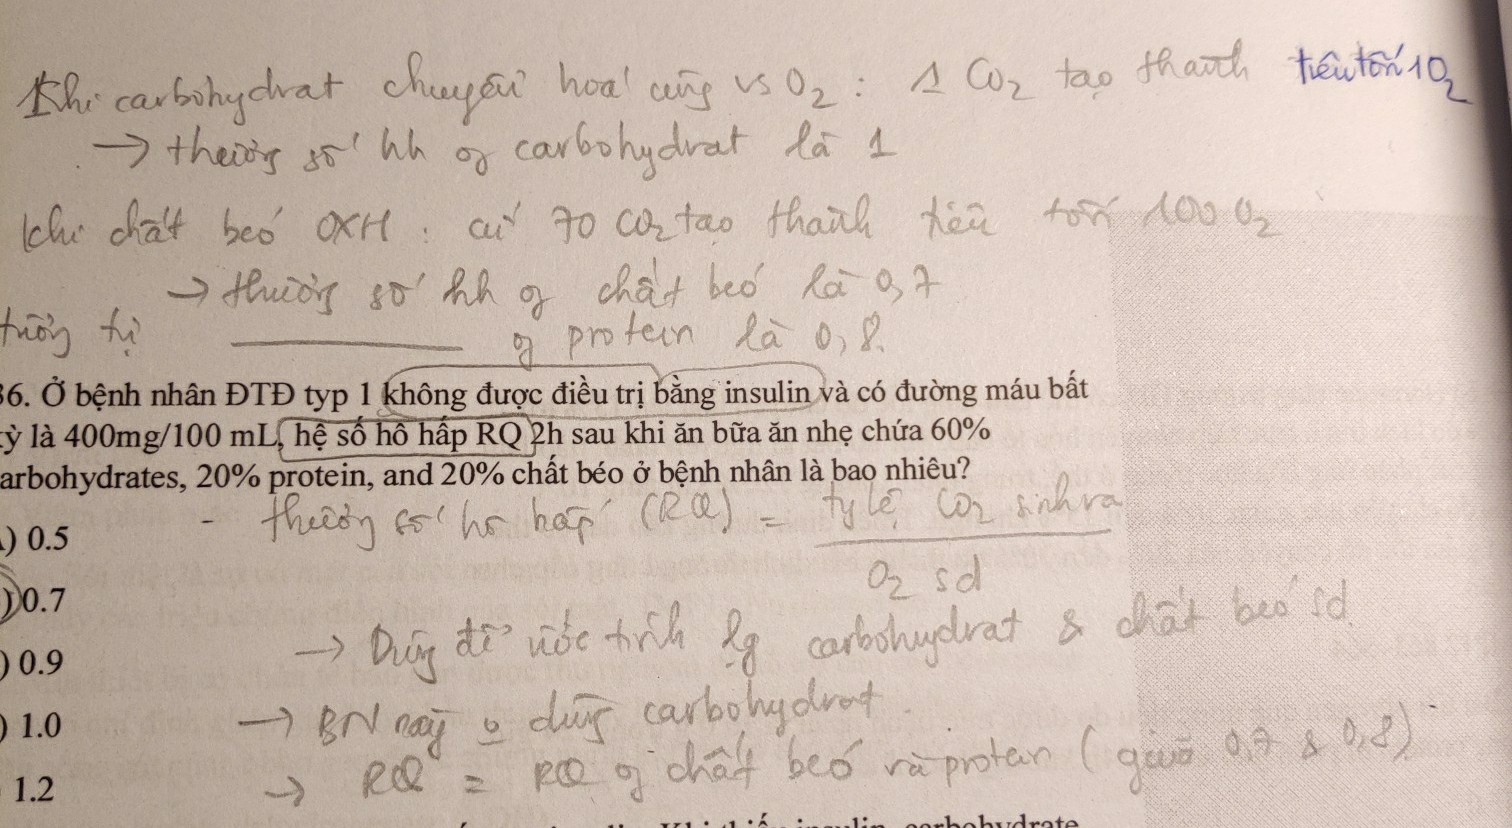 Khi carbohydrat chuyển hoá cùng vs O2 : 1 CO2 tạo thành tiêu tốn 1O2
→ thương số hh of carbohydrat là 1
Khi chất béo OXH : cứ 70 CO2 tạo thành tiêu tốn 100 O2
→ thương số hh of chất béo là 0,7
tương tự ______ of protein là 0,8.
36. Ở bệnh nhân ĐTĐ typ 1 không được điều trị bằng insulin và có đường máu bất
kỳ là 400mg/100 mL, hệ số hô hấp RQ 2h sau khi ăn bữa ăn nhẹ chứa 60%
arbohydrates, 20% protein, and 20% chất béo ở bệnh nhân là bao nhiêu?
- thương số hô hấp (RQ) = tỷ lệ CO2 sinh ra
) 0.5
O2 sd
) 0.7
→ Dùng để ước tính lg carbohydrat & chất béo sd.
) 0.9
→ BN này o dùng carbohydrat
) 1.0
→ RQ = RQ of chất béo và protein (giữa 0,7 & 0,8)
1.2
insulin, carbohydrate